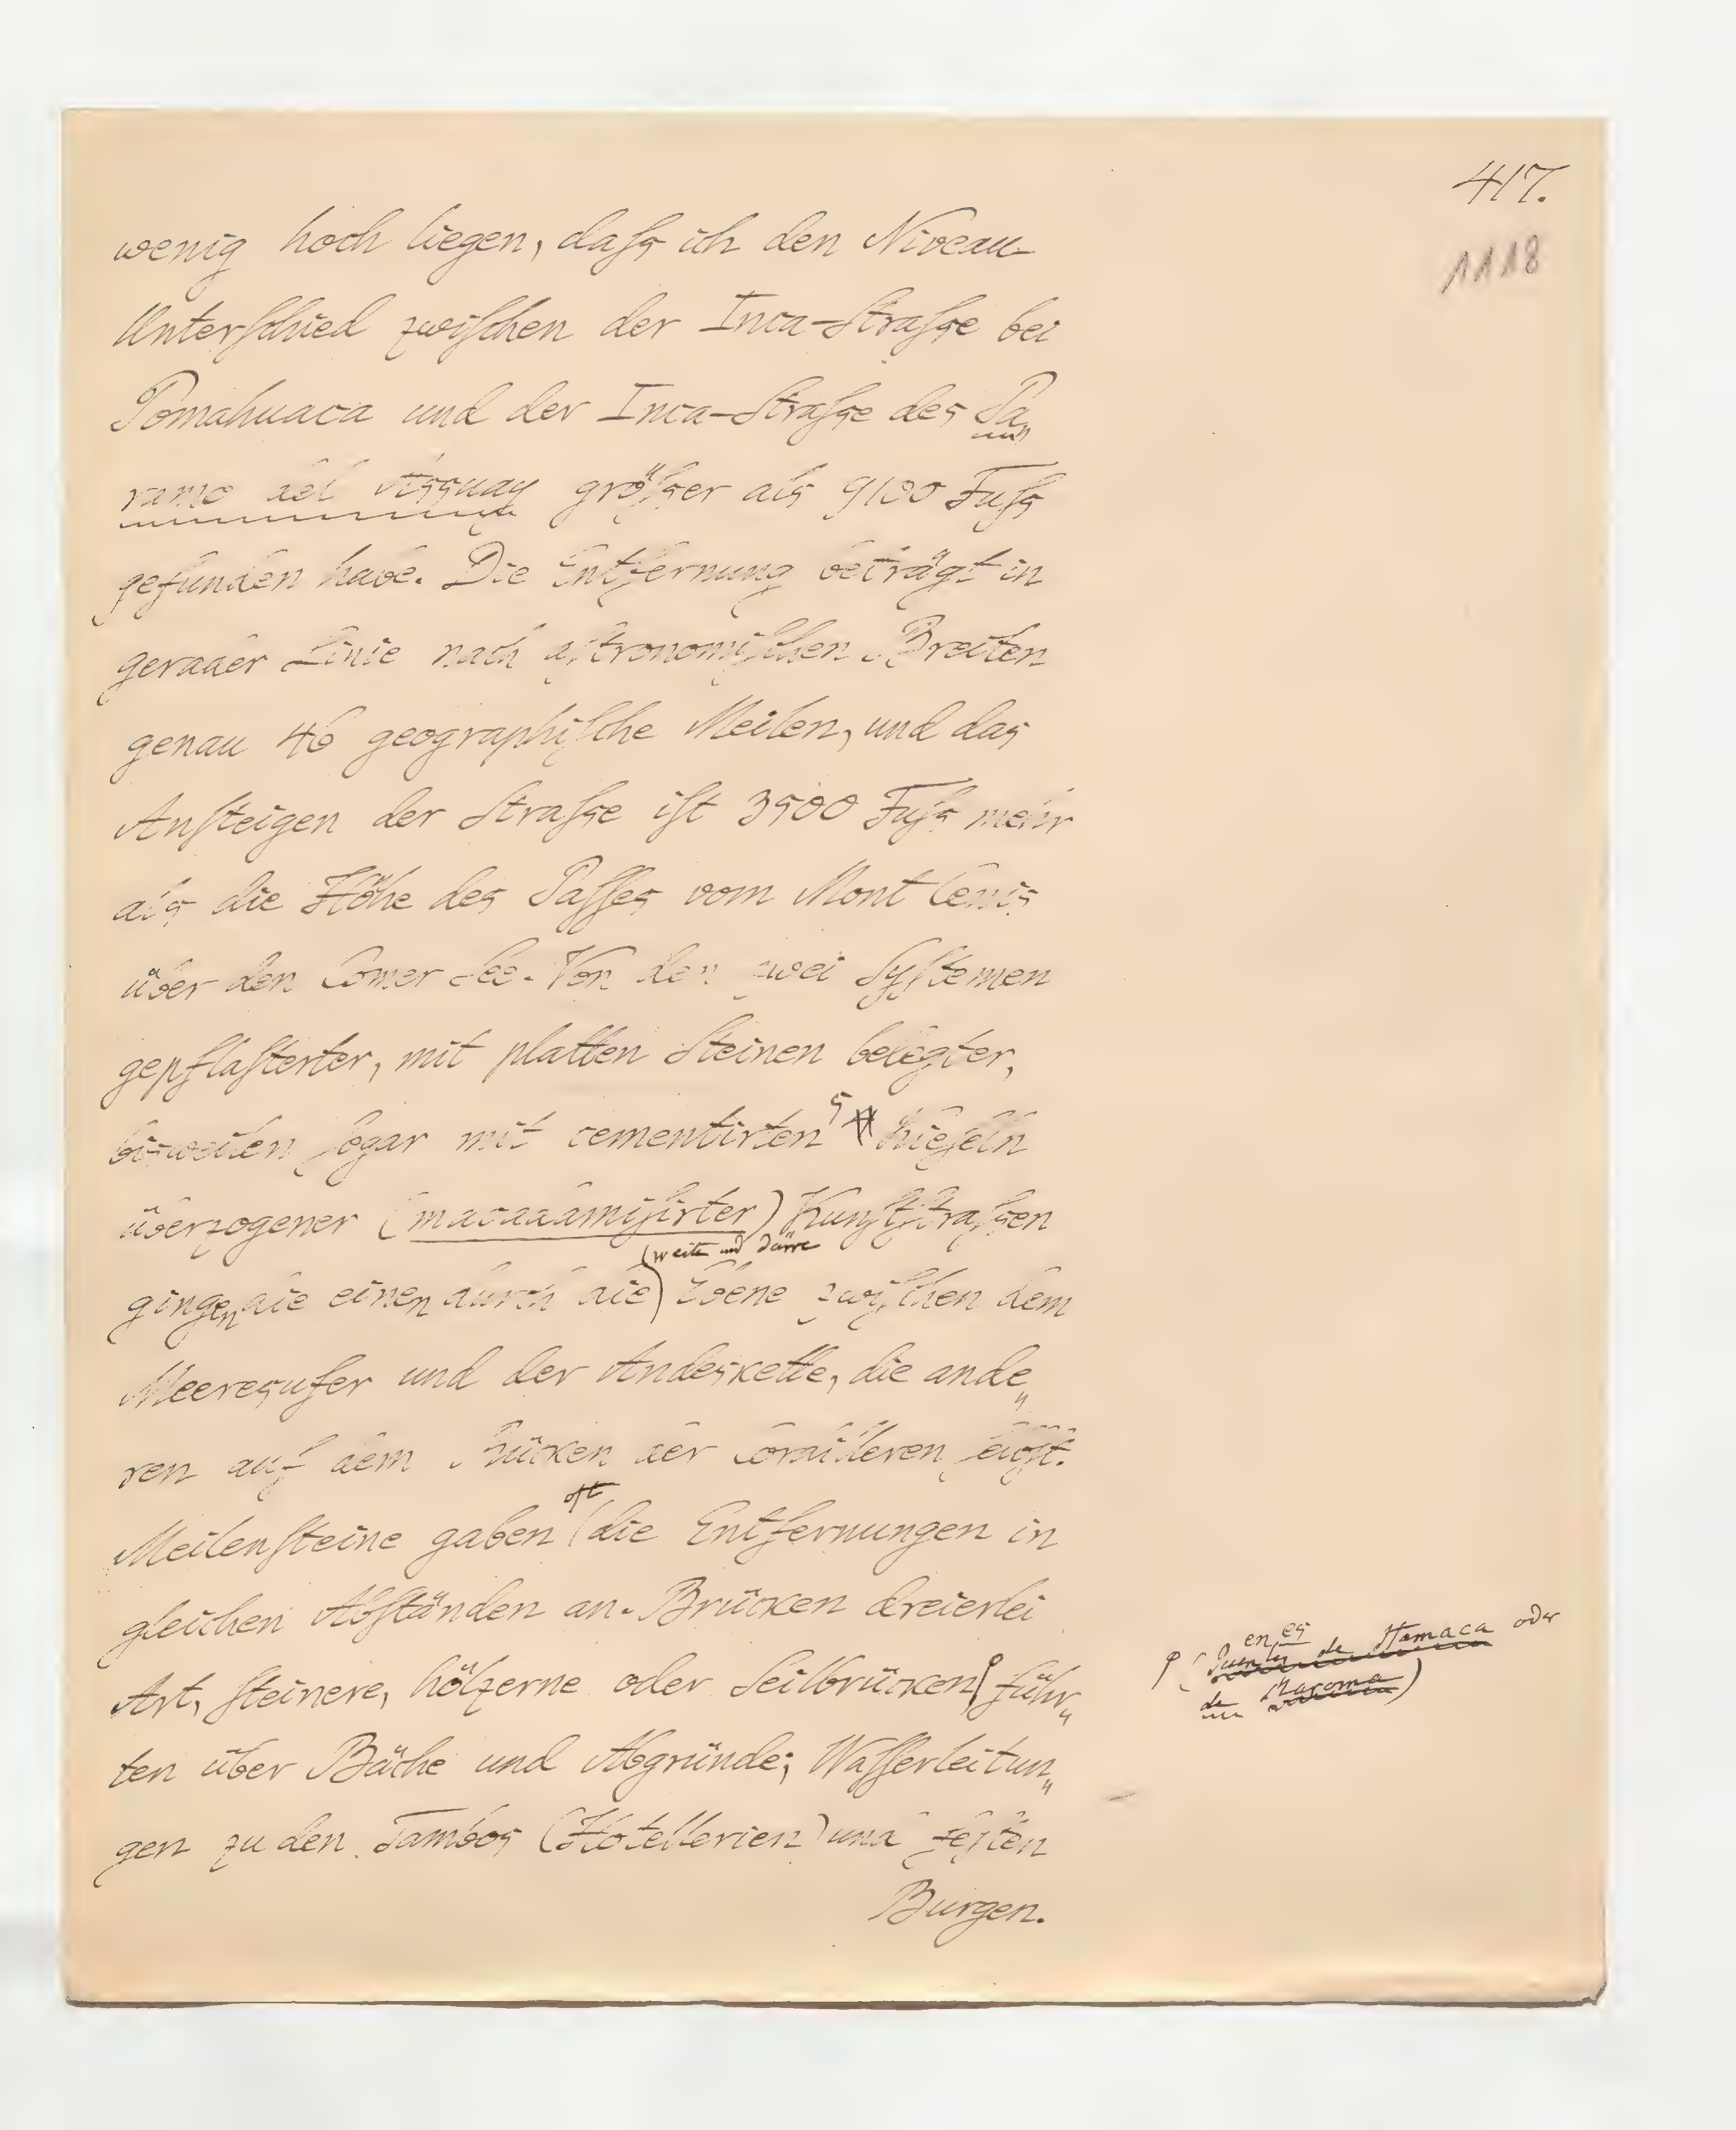 417.
1118
wenig hoch liegen, daſs ich den Niveau-
Unterſchied zwiſchen der Inca-Straſse bei
Pomahuaca und der Inca-Straſse des Pa„
ramo del Assuay größser als 9100 Fuſs
gefunden habe. Die Entfernung beträgt in
gerader Linie nach aſtronomiſchen Breiten
genau 46 geographiſche Meilen, und das
Anſteigen der Straſse iſt 3500 Fuſs mehr
als die Höhe des Paſſes vom Mont Cenis
über den Comer See. Von den zwei Syſtemen
gepflaſterter, mit platten Steinen belegter,
bisweilen ſogar mit cementirten Kieſeln
überzogener (macadamiſirter) Kunſtſtraſsen
(weite und dürre
gingen die einen durch die) Ebene zwiſchen dem
Meeresufer und der Andeskette, die ande„
ren auf dem Rücken der Cordilleren ſelbſt.
oft
Meilenſteine gaben die Entfernungen in
gleichen Abſtänden an. Brücken dreierlei
Art, ſteinere, hölzerne oder Seilbrücken führ„
en es
(Puentes de Hamaca oder
de Maroma)
ten über Bäche und Abgründe; Waſſerleitun„
gen zu den Tambos (Hotellerien) und feſten
Burgen.